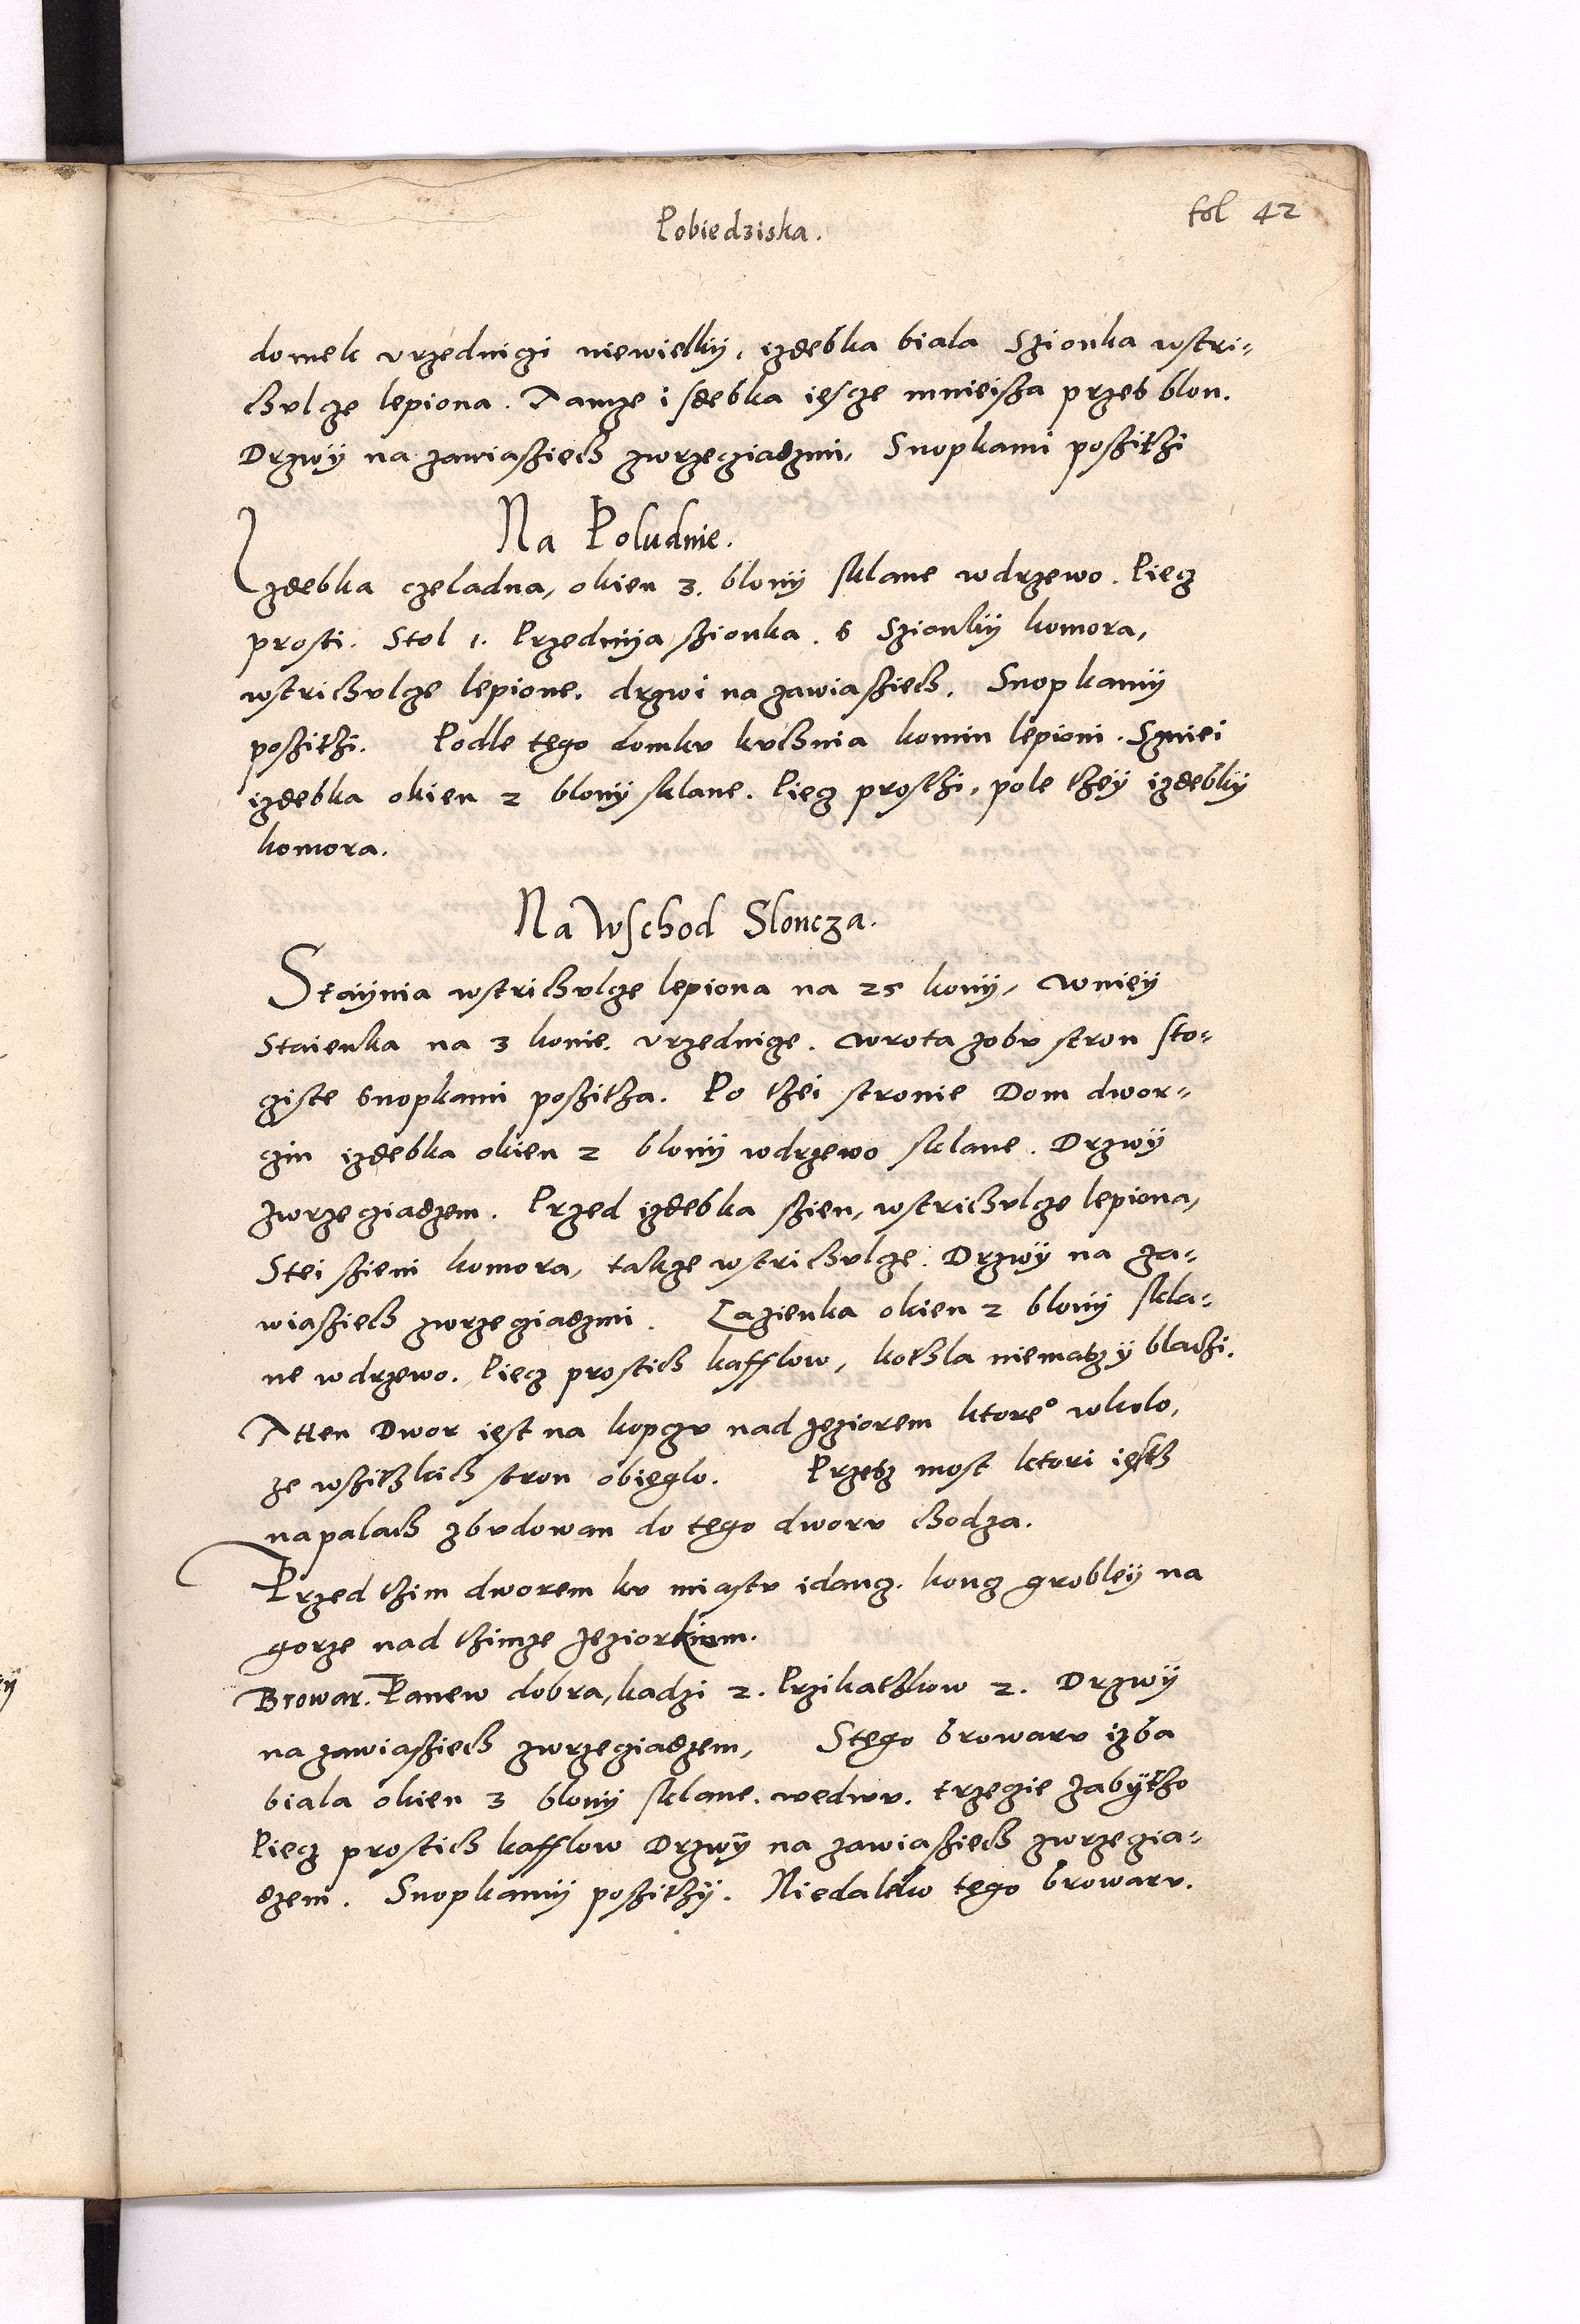 Pobiedziska.
fol 42
domek vrzednigi niewielkÿ, izdebka biala Szionka wstri-
chvlcze lepiona. Tamze isdebka iescze mnieisza przes blon.
Drzwÿ na zawiasziech zwrzecziadzmi, Snopkami poszithi
Na Poludnie.
Izdebka czeladna, okien 3. blonÿ sklane wdrzewo. Piecz
prosti. Stol 1. Przednÿa szionka. S Szionkÿ komora,
wstrichvlcze lepione. drzwi na zawiasziech. Snopkamÿ
poszithi. Podle tego domkv kvchnia komin lepioni. Szniei
izdebka okien 2 blonÿ sklane. Piecz prosthi, pole theÿ izdebkÿ
komora.
Na Wschod Sloncza.
Staÿnia wstrichvlcze lepiona na 25 konÿ, wnieÿ
Staienka na 3 konie. vrzednicze. wrota zobv stron sto-
giste Snopkami poszitha. Po thei stronie Dom dwor-
czin izdebka okien 2 blonÿ wdrzewo sklane. Drzwÿ
zwrzecziadzem. Przed izdebka szien, wstrichvlcze lepiona,
Stei szieni komora, takze wstrichvlcze. Drzwÿ na za-
wiasziech zwrzecziadzmi. Lazienka okien 2 blonÿ skla-
ne wdrzewo. Piecz prostich kafflow, kothla niemasz y blachi.
Atten Dwor iest na kopczv nad jeziorem ktore° wkolo,
ze wszithkich stron obieglo. Przesz most ktori iesth
napalach zbvdowan do tego dworv chodza.
Przed thim dworem kv miastv idancz. koncz grobleÿ na
gorze nad thimze Jeziorkiem.
Browar. Panew dobra, kadzi 2. Przikathkow 2. Drzwÿ
na zawiasziech zwrzecziadzem, Stego browarv izba
biala okien 3 blonÿ sklane. wedwv. trzecie zabÿtho
Piecz prostich kafflow Drzwÿ na zawiasziech zwrzeczia-
dzem. Snopkamÿ poszithÿ. Niedaleko tego browarv.